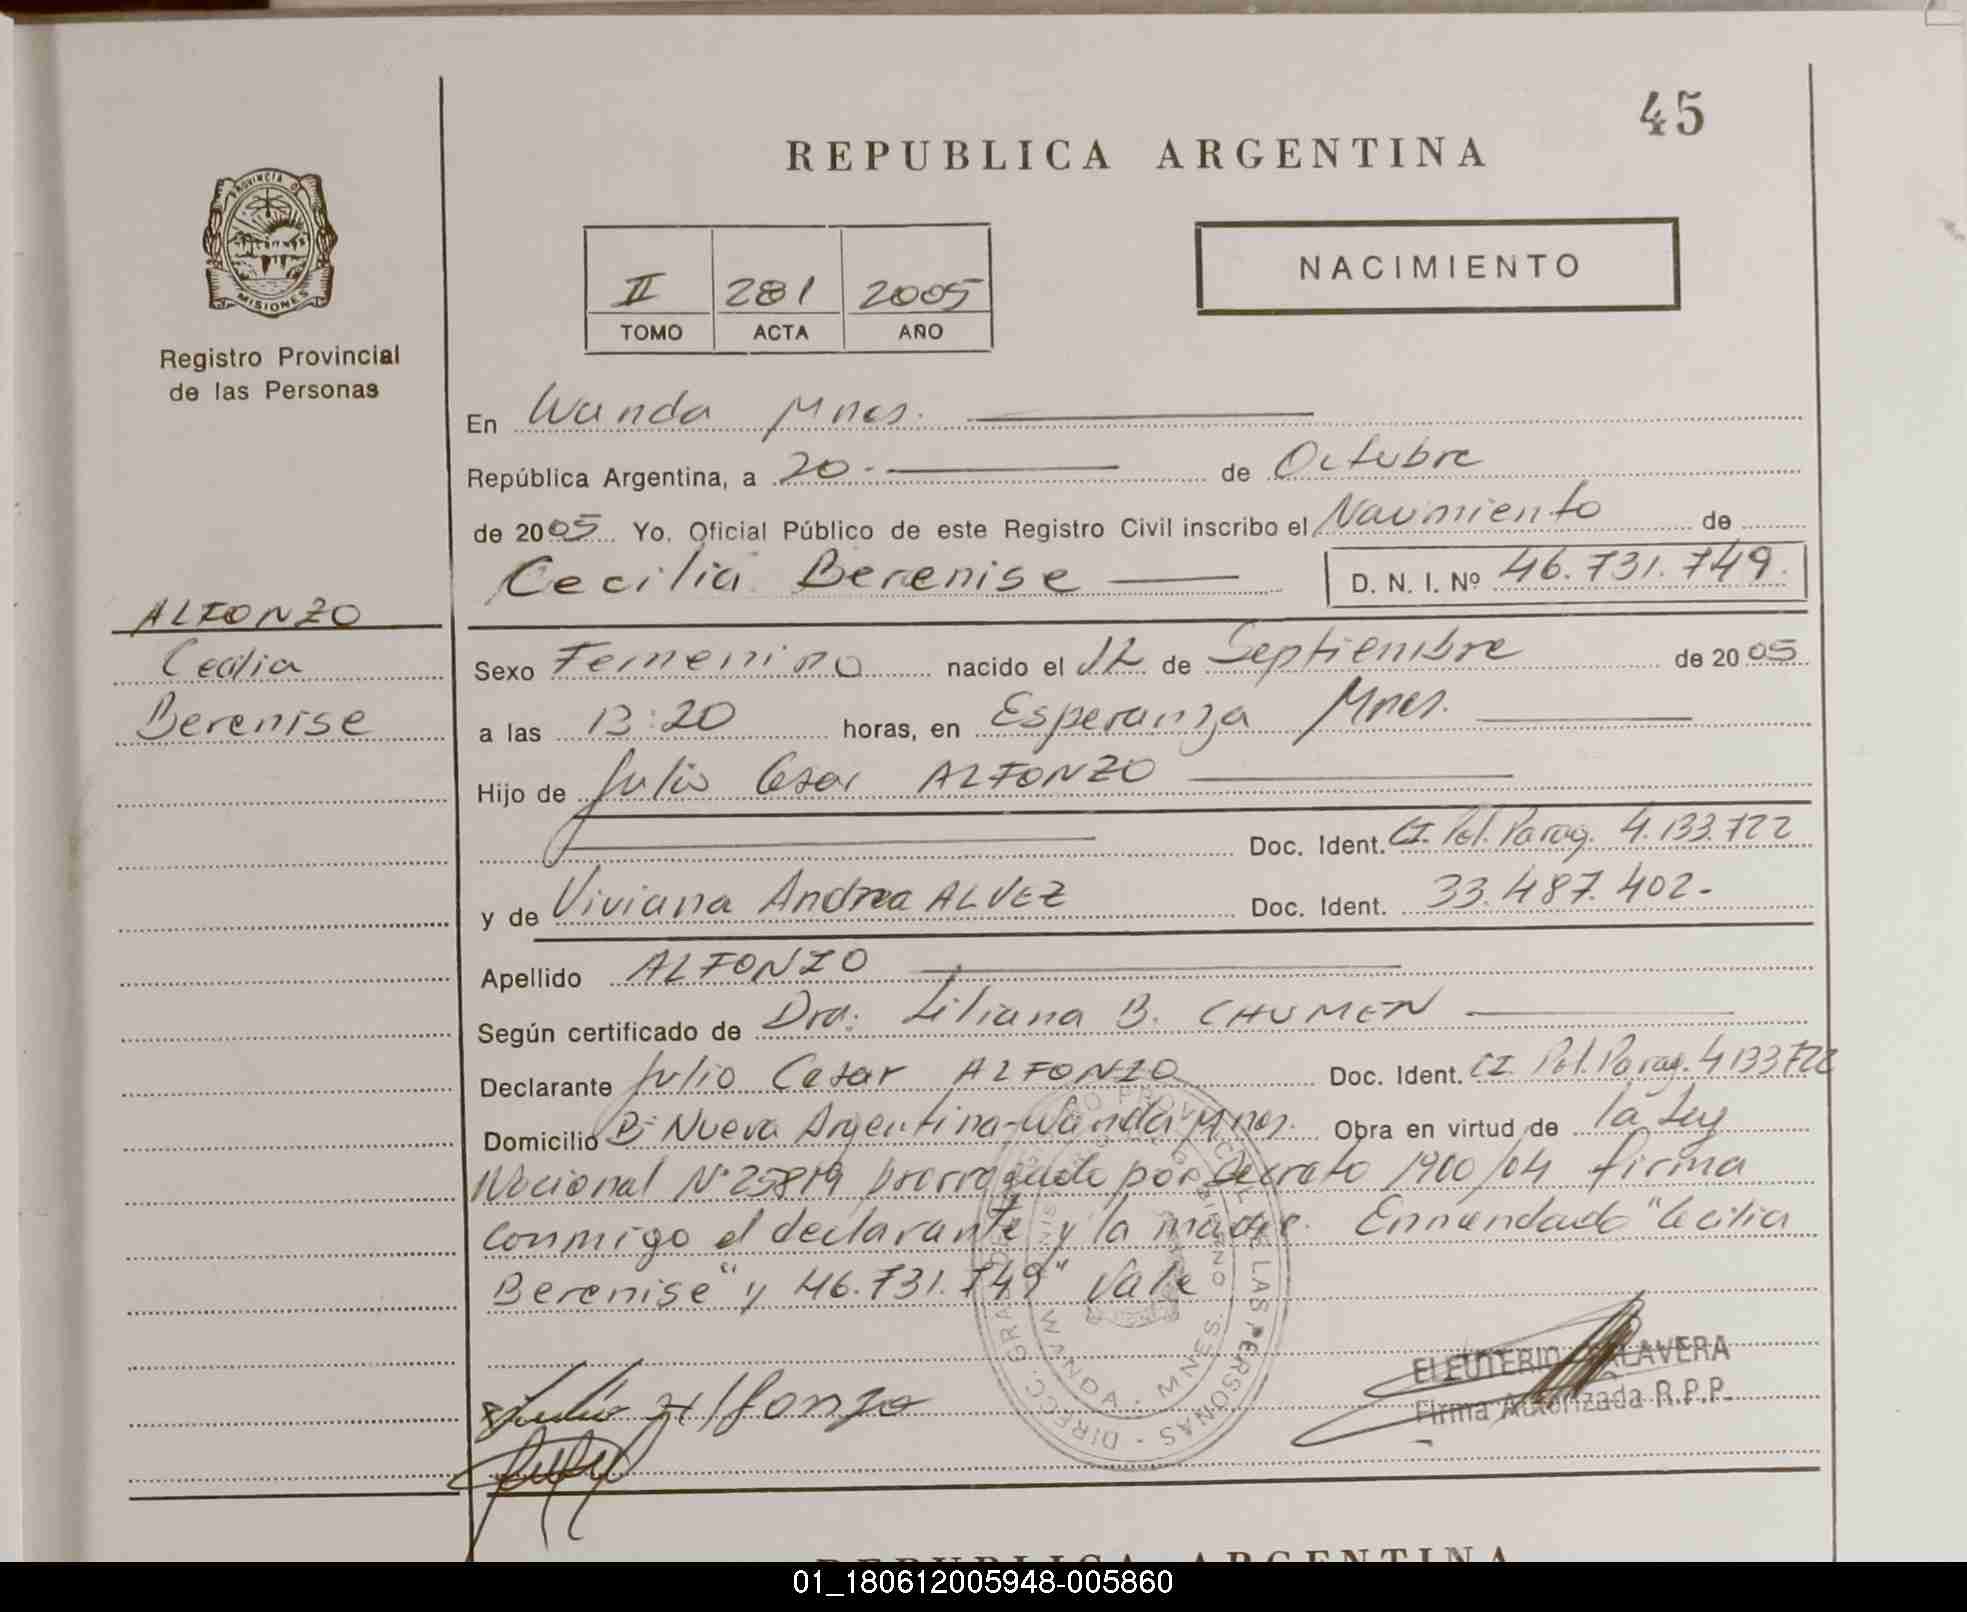 45
REPUBLICA ARGENTINA
PROVINCIA DE
MISIONES
Registro Provincial
de las Personas
II 281 2005
TOMO ACTA AÑO
NACIMIENTO
En Wanda Mnes.
República Argentina, a 20 de Octubre
de 2005 Yo, Oficial Público de este Registro Civil inscribo el Nacimiento de
Cecilia Berenise D. N. I. Nº 46.731.749.
ALFONZO
Cecilia
Berenise
Sexo Femenino nacido el 12 de Septiembre de 2005
a las 13:20 horas, en Esperanza Mnes.
Hijo de Julio Cesar ALFONZO
Doc. Ident. CI. Pol. Parag. 4.133.722
y de Viviana Andrea ALVEZ Doc. Ident. 33.487.402-
Apellido ALFONZO
Según certificado de Dra. Liliana B. CHUMEN
Declarante Julio Cesar ALFONZO Doc. Ident. CI Pol. Parag. 4133722
Domicilio Bº Nueva Argentina-Wanda Mnes. Obra en virtud de la Ley
Nacional Nº 25819 prorrogado por Decreto 1900/04 firma
conmigo el declarante y la madre. Enmendado "Cecilia
Berenise" y 46.731.749" Vale
WANDA - MNES.
LAS PERSONAS - DIRECC. GRAL
Julio Alfonzo
ELEUTERIO TALAVERA
Firma Autorizada R.P.P.
REPUBLICA ARGENTINA
01_180612005948-005860